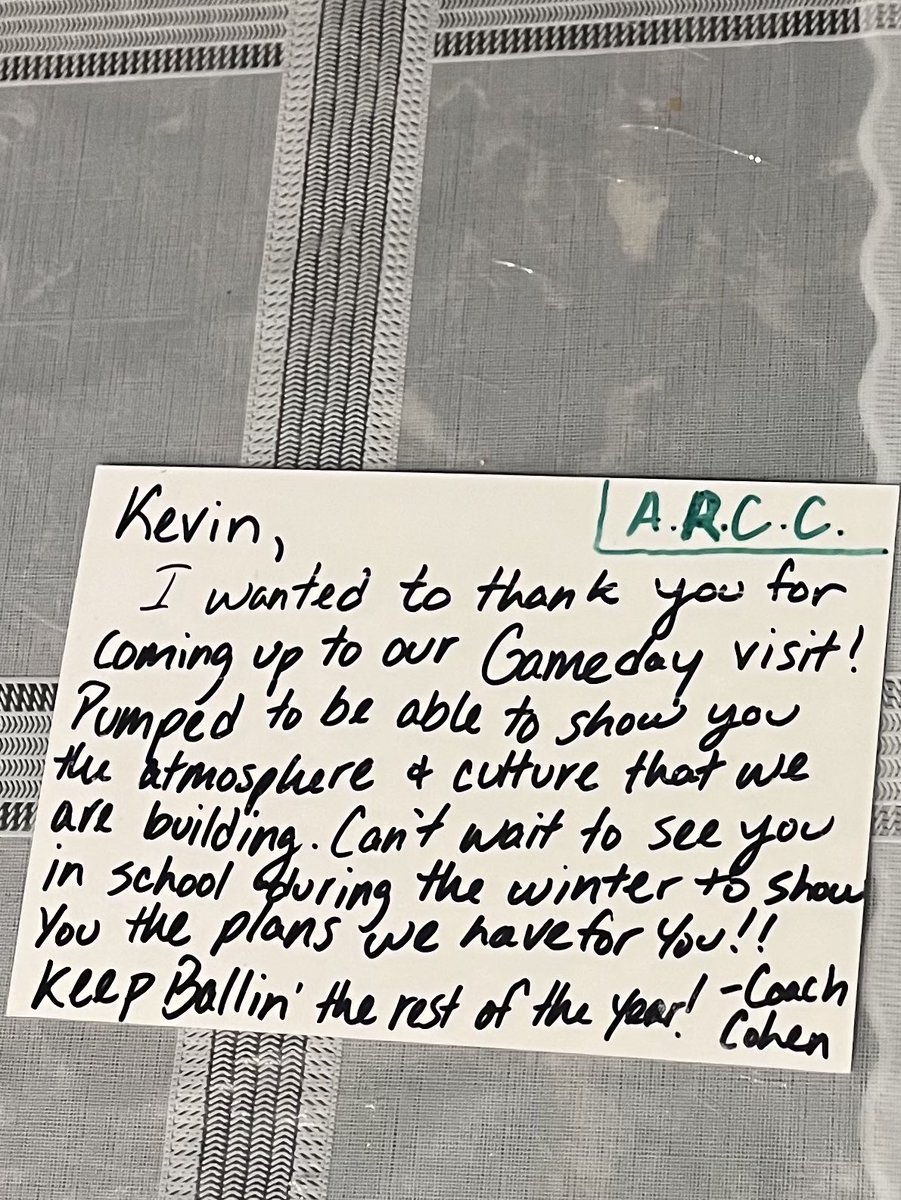 Kevin,
A.R.C.C.
I wanted to thank you for
coming up to our Gameday visit!
Pumped to be able to show you
the atmosphere & culture that we
are building. Can't wait to see you
in school during the winter to show
you the plans we have for you!!
Keep Ballin' the rest of the year! -Coach
Cohen